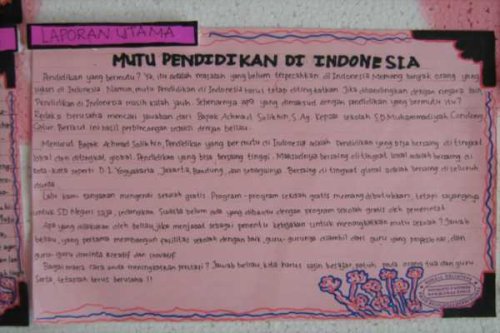 LAPORAN UTAMA
MUTU PENDIDIKAN DI INDONESIA
Pendidikan yang bermutu? Ya, itu adalah masalah yang belum terpecahkan di Indonesia. Memang banyak orang yang
sukses di Indonesia. Namun, mutu pendidikan di Indonesia harus tetap ditingkatkan. Jika dibandingkan dengan negara lain,
Pendidikan di Indonesia masih kalah jauh. Sebenarnya apa yang dimaksud dengan pendidikan yang bermutu itu?
berusaha mencari jawaban dari Bapak Achmad Solikhin, S.Ag Kepala sekolah SD Muhammadiyah Condong
Catur. Berikut perbincangan redaksi dengan beliau.
Menurut Bapak Achmad Solikhin, Pendidikan yang bermutu di Indonesia adalah pendidikan yang bisa bersaing di tingkat
lokal dan ditingkat global. Pendidikan yang bisa bersaing tinggi. Maksudnya bersaing ditingkat lokal adalah bersaing di
kota-kota seperti D.I. Yogyakarta, Jakarta, Bandung, dan sebagainya. Bersaing di tingkat global adalah bersaing di seluruh
dunia.
Lalu bagaimana mengenai sekolah gratis. Program-program sekolah gratis memang dibutuhkan, tetapi sayangnya
untuk SD Negeri saja, sedangkan Swasta belum ada yang dibantu dengan program sekolah gratis oleh pemerintah.
Apa yang dilakukan oleh beliau, jika menjadi sebagai penentu kebijakan untuk meningkatkan mutu sekolah? Jawab
beliau, yang pertama membangun fasilitas sekolah dengan baik, guru-gurunya diambil dari guru yang profesional, dan
guru-guru diminta kreatif dan inovatif.
Bagaimana cara anda meningkatkan prestasi? Jawab beliau, kita harus rajin belajar, patuh pada orang tua dan guru
Serta, tetaplah terus berusaha!!